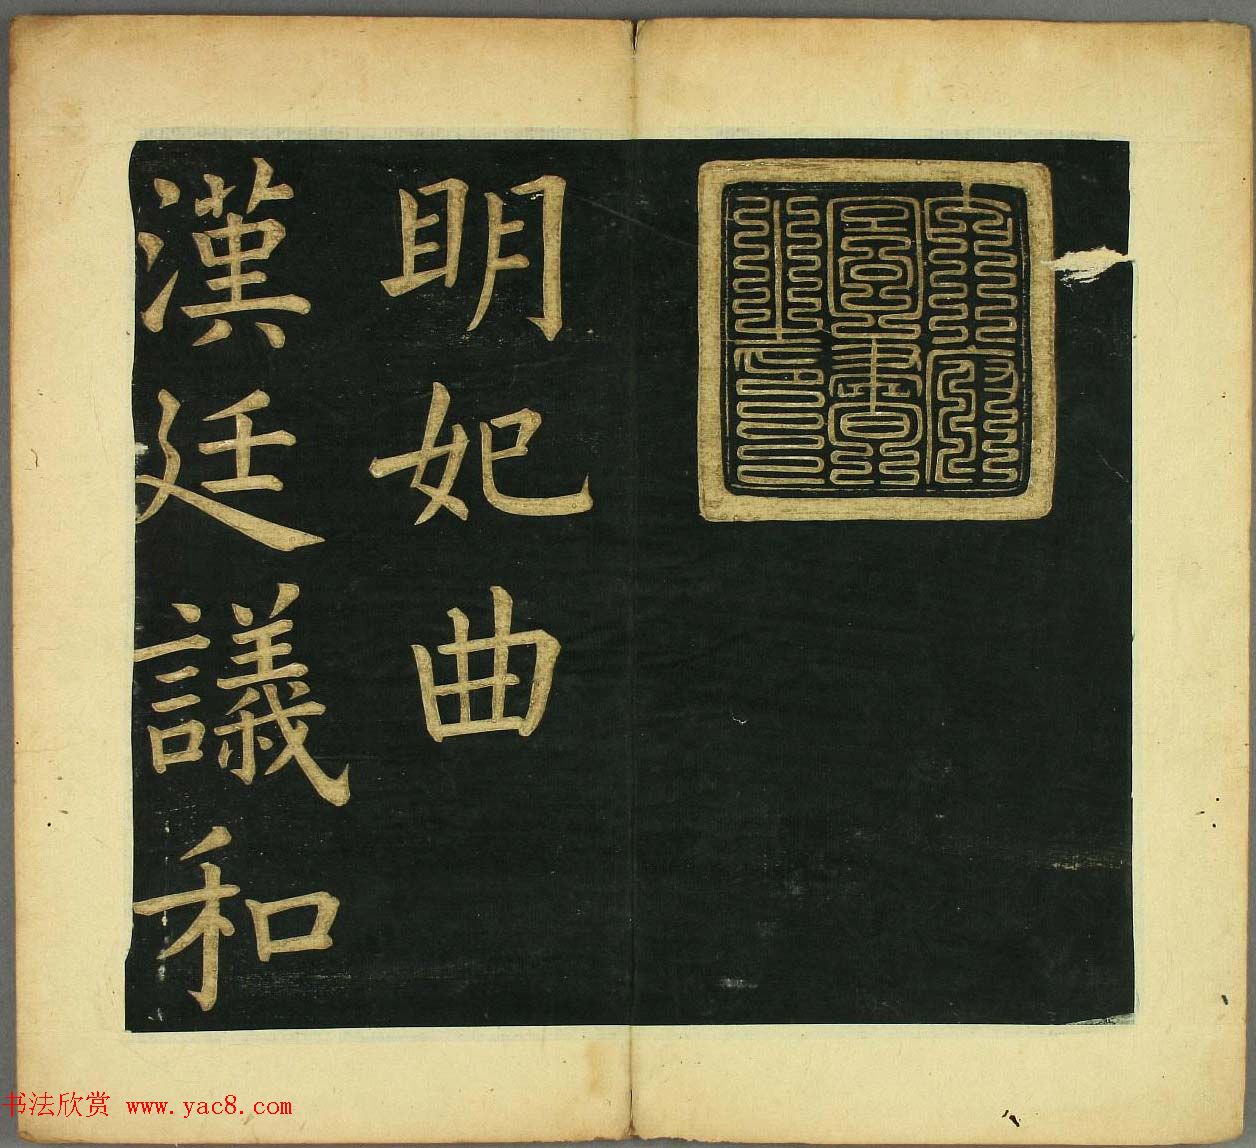 眀妃曲
漢廷議和
书法欣赏 www.yac8.com